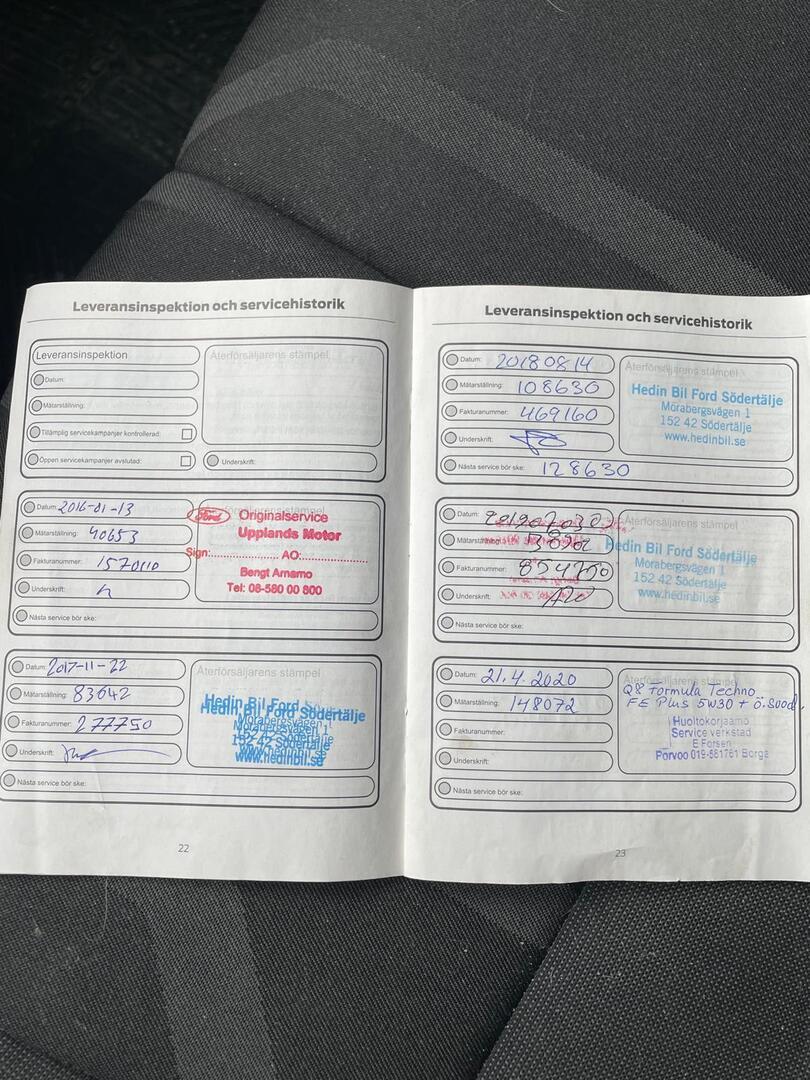 Leveransinspektion och servicehistorik
Leveransinspektion
Återförsäljarens stämpel
Datum:
Mätarställning:
Tillämplig servicekampanjer kontrollerad:
Öppen servicekampanjer avslutad:
Underskrift:
Datum: 2016-01-13
Mätarställning: 40653
Fakturanummer: 1570110
Underskrift:
Ford Originalservice
Upplands Motor
Sign: AO:
Bengt Arnamo
Tel: 08-580 00 800
Nästa service bör ske:
Datum: 2017-11-22
Mätarställning: 83642
Fakturanummer: 277750
Underskrift:
Återförsäljarens stämpel
Hedin Bil Ford Södertälje
Morabergsvägen 1
152 42 Södertälje
www.hedinbil.se
Nästa service bör ske:
22
Leveransinspektion och servicehistorik
Datum: 20180814
Mätarställning: 108630
Fakturanummer: 469160
Underskrift:
Återförsäljarens stämpel
Hedin Bil Ford Södertälje
Morabergsvägen 1
152 42 Södertälje
www.hedinbil.se
Nästa service bör ske: 128630
Datum:
Mätarställning:
Fakturanummer: 854750
Underskrift:
Återförsäljarens stämpel
Hedin Bil Ford Södertälje
Morabergsvägen 1
152 42 Södertälje
www.hedinbil.se
Nästa service bör ske:
Datum: 21.4.2020
Mätarställning: 148072
Fakturanummer:
Underskrift:
Återförsäljarens stämpel
Q8 Formula Techno
FE Plus 5W30 + ö.suod.
Huoltokorjaamo
Service verkstad
E Forsen
Porvoo 019-581761 Borgå
Nästa service bör ske:
23